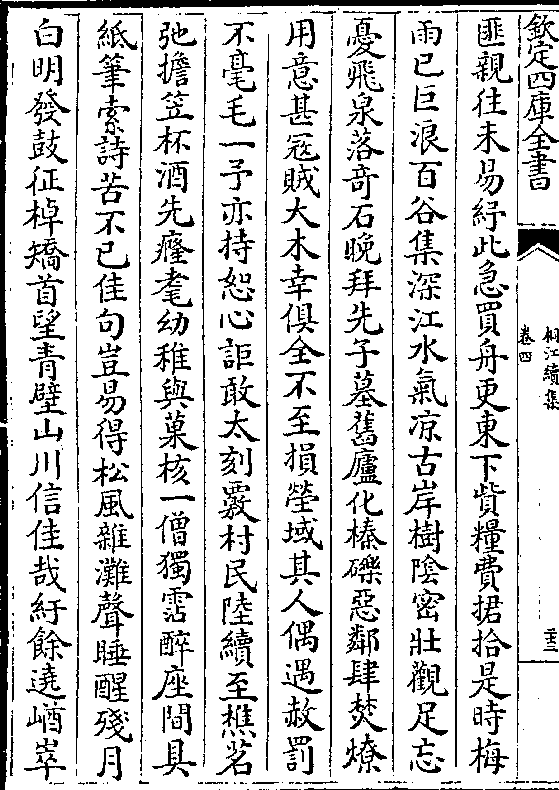 欽定四庫全書
桐江續集
卷四
二十三
匪親往未易紓此急買舟更東下貲糧費捃拾是時梅
雨已巨浪百谷集深江水氣凉古岸樹陰密壯觀足忘
憂飛泉落奇石晚拜先子墓舊廬化榛礫惡鄰肆焚燎
用意甚冦賊大木幸俱全不至損塋域其人偶遇赦罰
不毫毛一予亦持恕心詎敢太刻覈村民陸續至樵茗
弛擔笠杯酒先癃耄幼稚與菓核一僧獨霑醉座間具
紙筆索詩苦不已佳句豈易得松風雜灘聲睡醒殘月
白明發鼓征棹矯首望青壁山川信佳哉紆餘遶崷崒